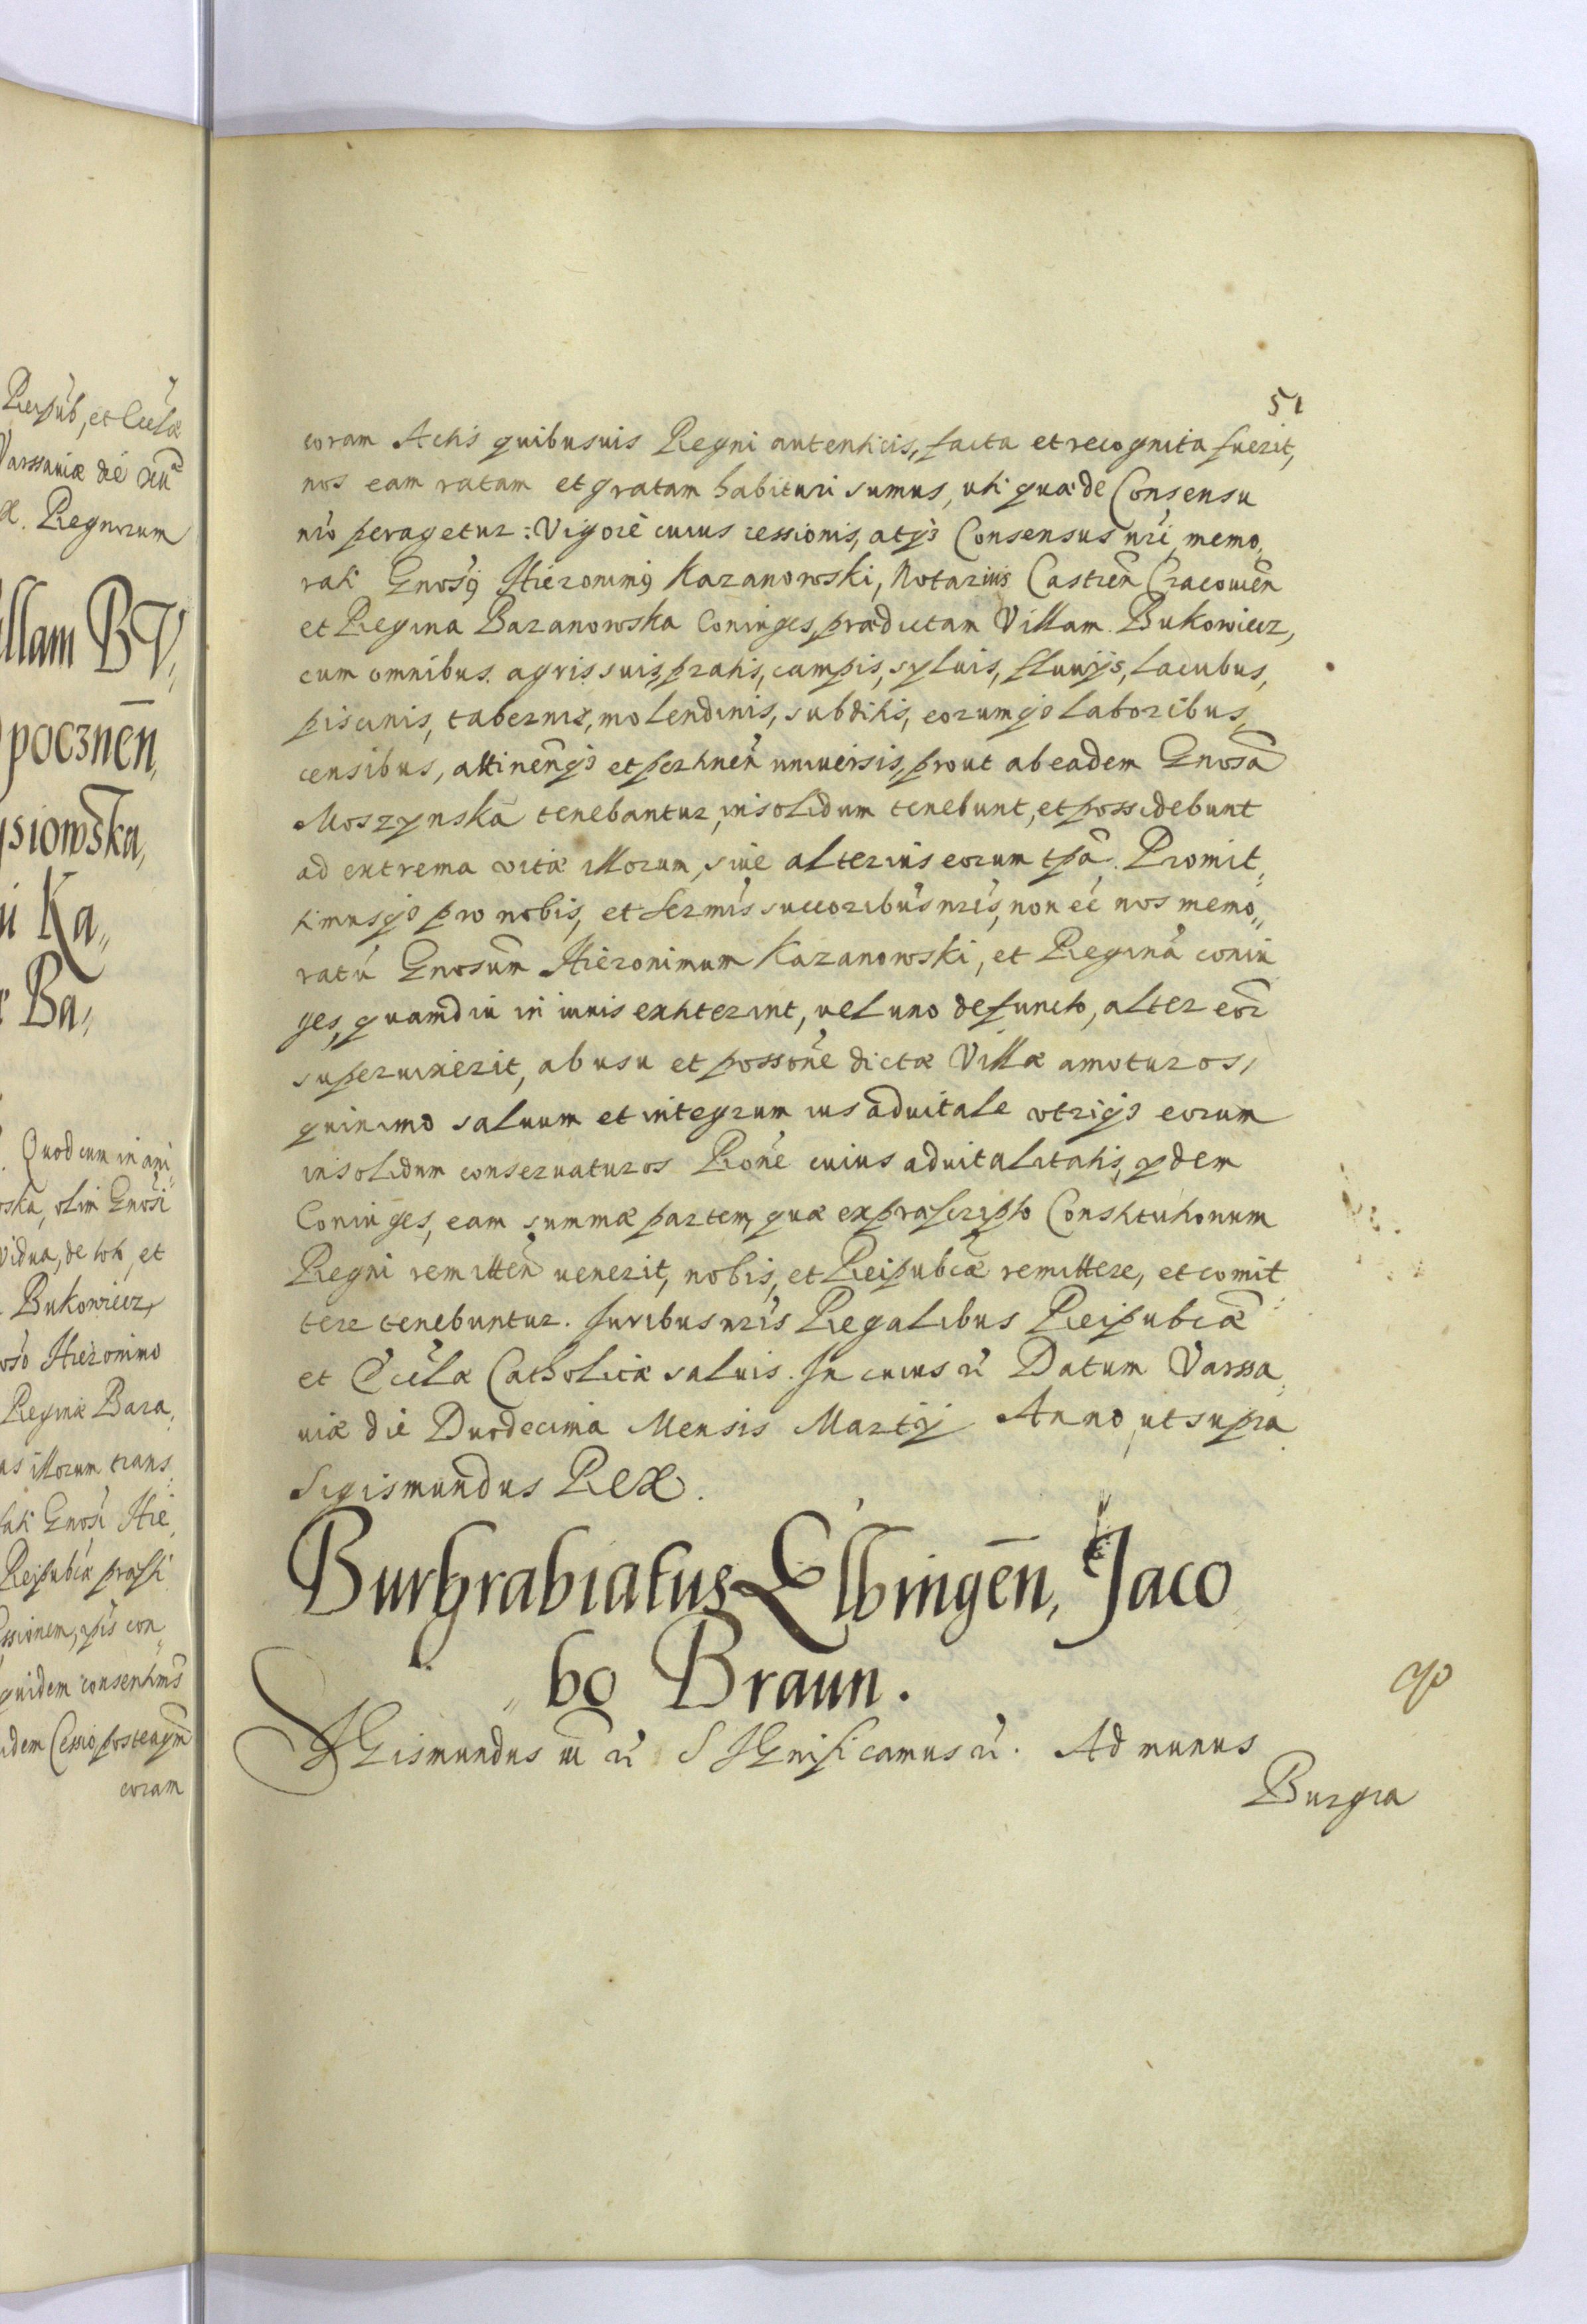 Reipub, et Eccła
Varssauiæ die
Regnorum
llam BV,
poczneń,
ysiowska,
Ka,,
Ba,,
Quod cum in ari
ska, olim Gnosi
vidua, de toti, et
Bukowiecz,
oso Hieronimo
Reginæ Bara,
as illorum trans
Gnosi Hie,
Reipubcæ præsti
ssionem, ipis con,,
quidem consentims
dem Cessio postenqm
coram
51
coram Actis quibusuis Regni autenticis, facta et recognita fuerit,
nos eam ratam et gratam habituri sumus, uti quæ de Consensu
nro peragetur: Vigore cuius cessionis, atqꝫ Consensus nri, memo,
rati Gnosꝯ Hieronimꝯ Kazanowski, Notarius Castreñ Cracouień
et Regina Baranowska Coniuges, prædictam Villam Bukowiecz,
cum omnibus agris suis, pratis, campis, syluis, fluuijs, lacubus,
piscinis, tabernis, molendinis, subditis, eorumqꝫ laboribus,
censibus, attinenꝫ et pertineñ uniuersis, prout ab eadem Gnosa
Moszynska tenebantur, in solidum tenebunt, et possidebunt
ad extrema vitæ illorum, siue alterius eorum tpã. Promit,,
timusqꝫ pro nobis, et Sermis succoribus nris, non eẽ nos memo,,
ratũ Gnosum Hieronimum Kazanowski, et Reginã coniu
ges, quamdiu in viuis extiterint, vel uno defuncto, alter eor
superuixerit, ab usu et possone dictæ Villæ amoturos,
quinimo saluum et integrum ius aduitale vtriqꝫ eorum
in solidum conseruaturos Rone cuius aduitalitatis, ydem
Coniuges, eam summæ partem, quæ ex præscripto Constitutionum
Regni remitteñ uenerit, nobis, et Reipubcæ remittere, et comit
tere tenebuntur. Juribus nris Regalibus Reipubcæ
et Eccłæ Catholicæ saluis. In cuius rei Datum Varssa,
uiæ die Duodecima Mensis Martij Anno, ut supra
Sigismundus Rex.
Burgrabiatus Elbingeñ, Jaco
bo Braun.
SIGismundus III rc SIGnificamus rc. Ad munus
Burgra